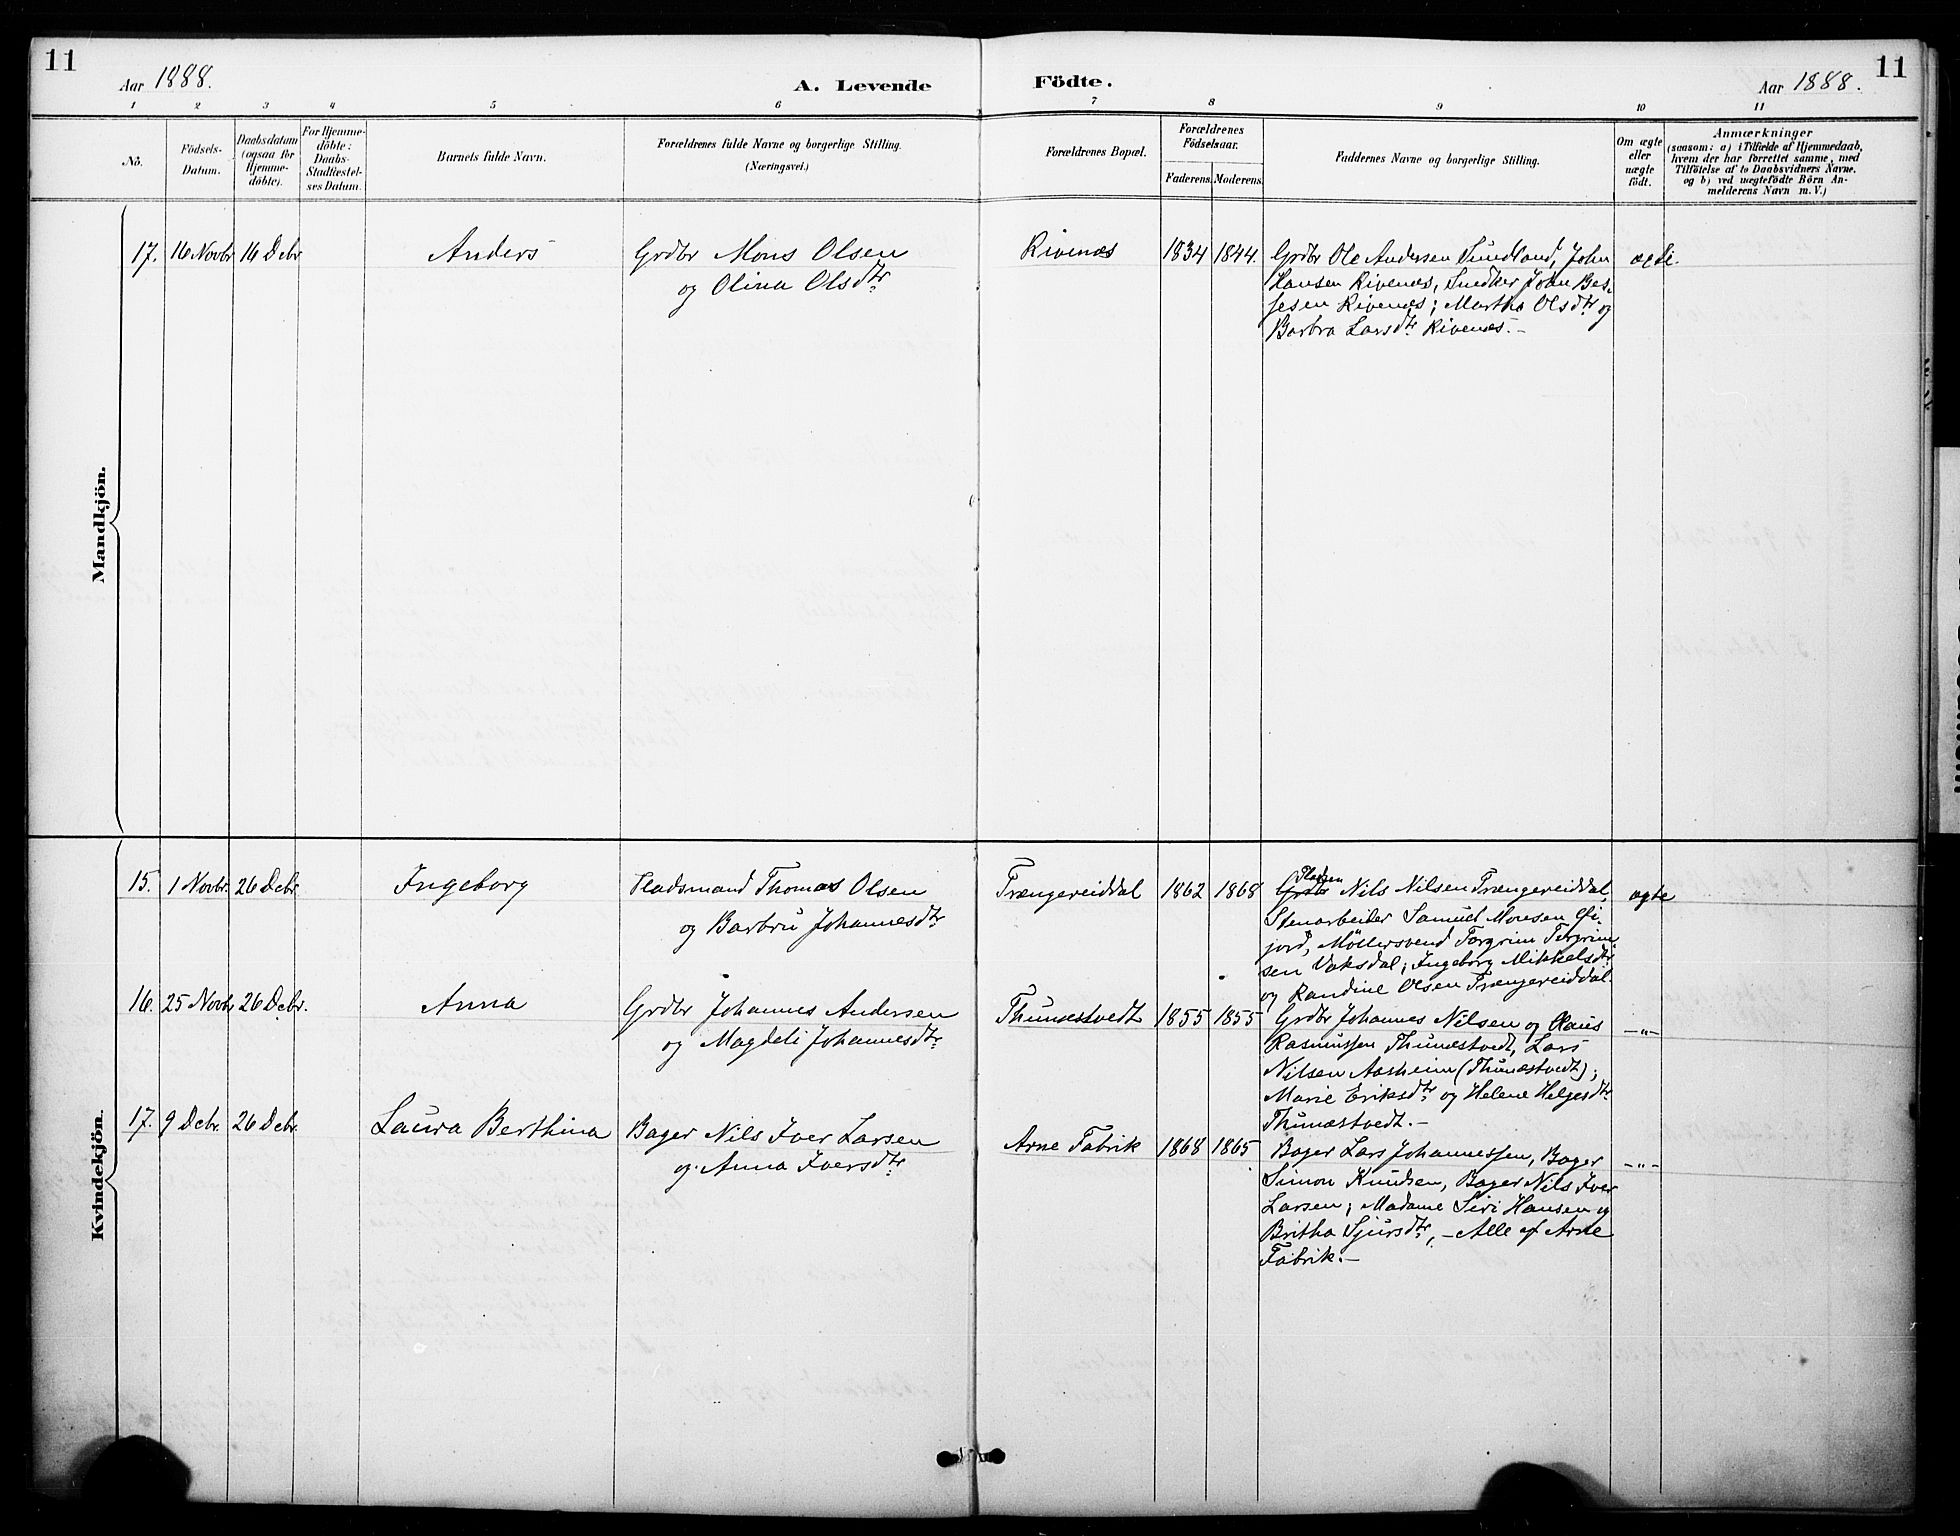 11
Aar 1888.
A. Levende Födte.
Aar 1888.
11
1 2 3 4 5 6 7 8 9 10 11
No.
Födsels-
Datum.
Daabsdatum
(ogsaa for
Hjemme-
döbte).
For Hjemme-
döbte:
Daabs-
Stadfæstel-
ses Datum.
Barnets fulde Navn.
Forældrenes fulde Navne og borgerlige Stilling.
(Næringsvei.)
Forældrenes Bopæl.
Forældrenes
Födselsaar.
Faderens. Moderens.
Faddernes Navne og borgerlige Stilling.
Om ægte
eller
uægte
födt.
Anmærkninger
(saasom: a) i Tilfælde af Hjemmedaab,
hvem der har forrettet samme, med
Tilföielse af to Daabsvidners Navne.
og b) ved uægtefödte Börn An-
melderens Navn m. V.)
Mandkjön.
17. 16 Novbr 16 Debr Anders Grdbr Mons Olsen
og Olina Olsdtr
Rivenæs 1834 1844.
Grdbr Ole Andersen Sundland, John
Hansen Rivenæs, Snedker John Bes-
sesen Rivenæs; Martha Olsdtr og
Barbra Larsdtr Rivenæs.-
ægte.
Kvindekjön.
15. 1 Novbr. 26 Debr. Ingeborg Pladsmand Thomas Olsen
og Barbru Johannesdtr
Trængereiddal 1862 1868
Pladsm
Grdbr Nils Nilsen Trængereiddal,
Stenarbeider Samuel Monsen
jord, Möllersvend Torgrim Torgrim-
sen Vaksdal; Ingeborg Mikkelsdtr
og Randine Olsen Trængereiddal.
ægte
16. 25 Novbr 26 Debr. Anna Grdbr Johannes Andersen
og Magdeli Johannesdtr
Thunestvedt 1855 1855
Grdbr Johannes Nilsen og Claus
Rasmussen Thunæstvedt, Lars
Nilsen Aasheim (Thunæstvedt);
Marie Eriksdtr og Helene Helgesdtr
Thunæstvedt.-
-"-
17. 9 Debr. 26 Debr. Laura Berthina Bager Nils Iver Larsen
og Anna Iversdtr
Arne Fabrik 1868 1865
Bager Lars Johannessen, Bager
Simon Knudsen, Bager Nils Iver
Larsen; Madame Siri Hansen og
Britha Sjursdtr, - Alle af Arne
Fabrik.-
-"-